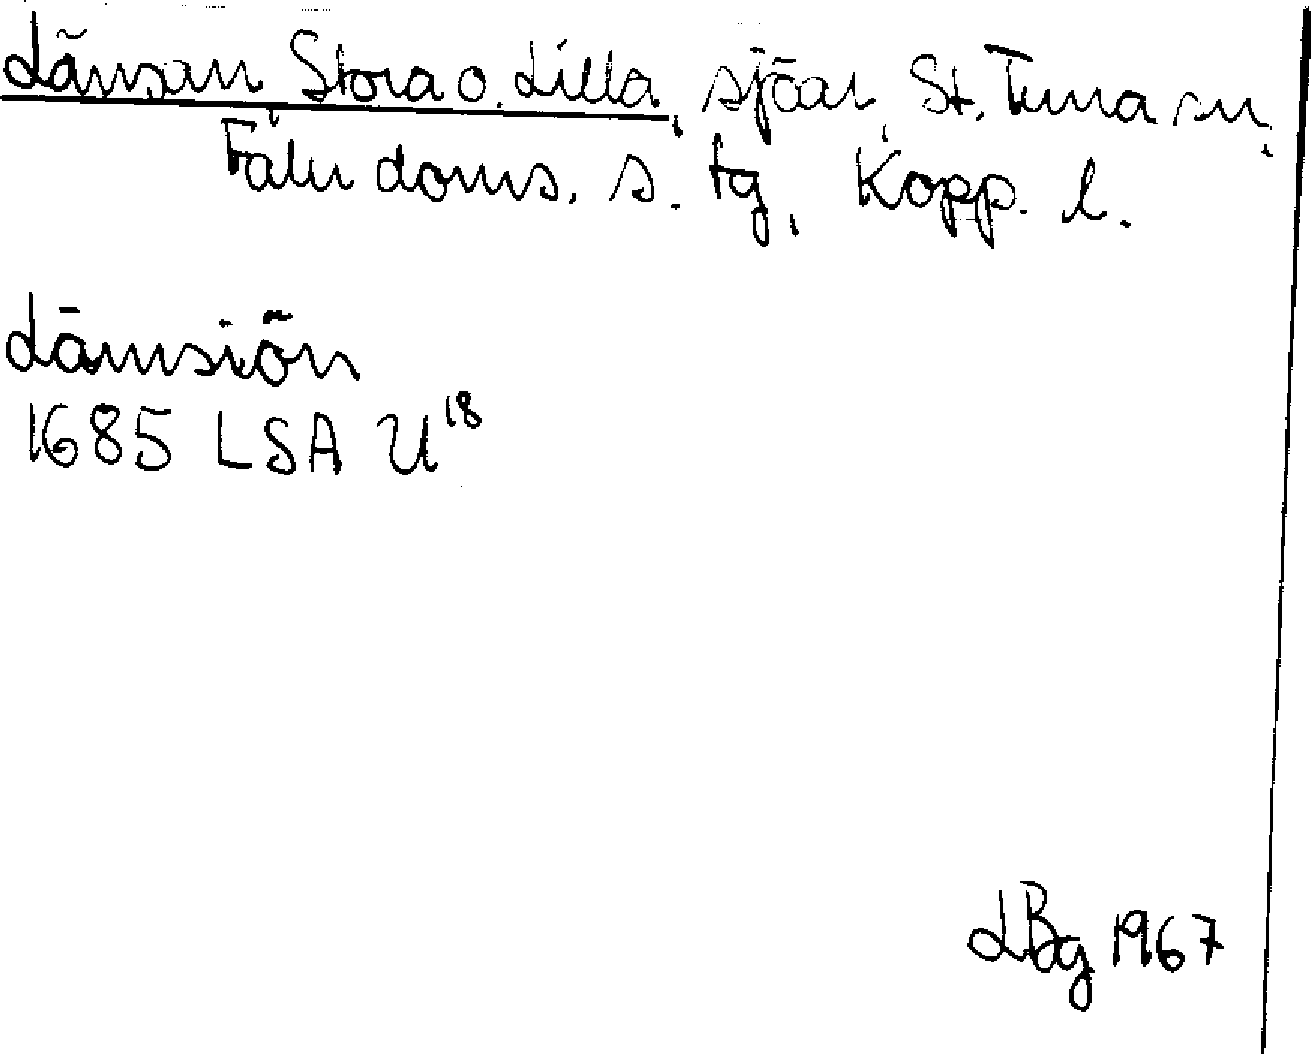 Länsan Stora o. Lilla, sjöar, St. Tuna sn,
Falu doms. s. tg, Kopp. l.
Länsiön
1685 LSA U18
LBg 1967